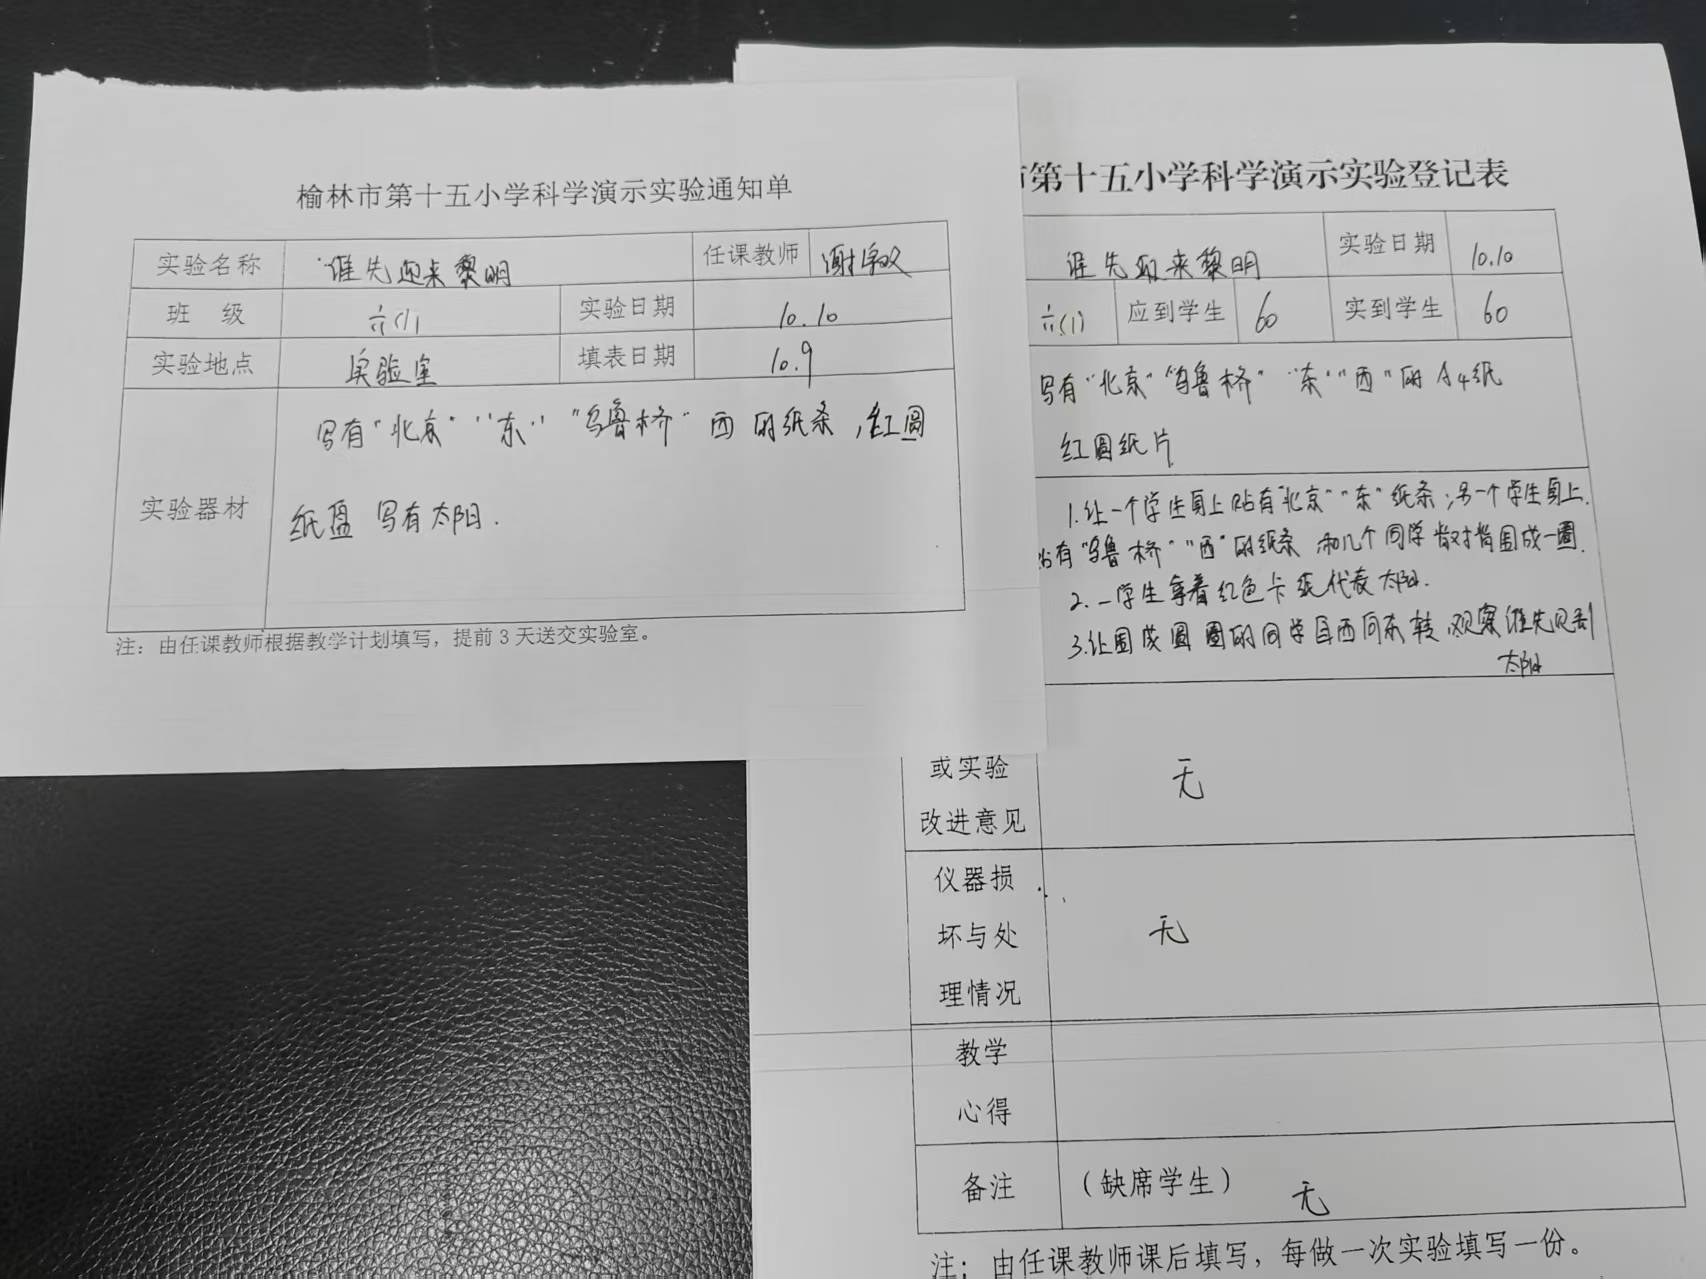 榆林市第十五小学科学演示实验通知单
实验名称 谁先迎来黎明 任课教师
班 级 六(1) 实验日期 10.10
实验地点 实验室 填表日期 10.9
实验器材
写有"北京" "东" "乌鲁木齐" 西 的纸条,红圆
纸 写有太阳.
注：由任课教师根据教学计划填写，提前 3 天送交实验室。
第十五小学科学演示实验登记表
谁先迎来黎明 实验日期 10.10
六(1) 应到学生 60 实到学生 60
写有"北京" "乌鲁木齐" "东" "西"的A4纸
红圆纸片
1.让一个学生身上贴有"北京" "东"纸条;另一个学生身上
贴有"乌鲁木齐" "西"的纸条 和几个同学背对背围成一圈.
2.一学生拿着红色卡纸代表太阳.
3.让围成圆圈的同学自西向东转,观察谁先见到
太阳
或实验
改进意见
无
仪器损
坏与处
理情况
无
教学
心得
备注 （缺席学生） 无
注：由任课教师课后填写，每做一次实验填写一份。